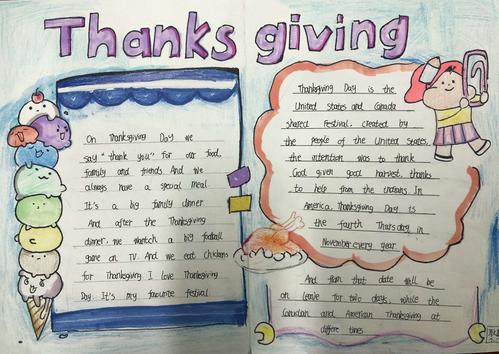 Thanksgiving
On Thanksgiving Day we
say "thank you" for our food,
family and friends And we
always have a special meal.
It's a big family dinner.
And after the Thanksgiving
dinner, we watch a big football
game on TV And we eat chickens
for Thanksgiving I love Thanksgiving
Day. It's my favourite festival
Thanksgiving Day is the
United States and Canada
shared Festival, created by
the people of the United States,
the intention was to thank
God given good harvest, thanks
to help from the Indians. In
America, Thanksgiving Day is
the fourth Thursday in
November every year
And from that date will be
on leave for two days, while the
Canadian and American Thanksgiving at
different times